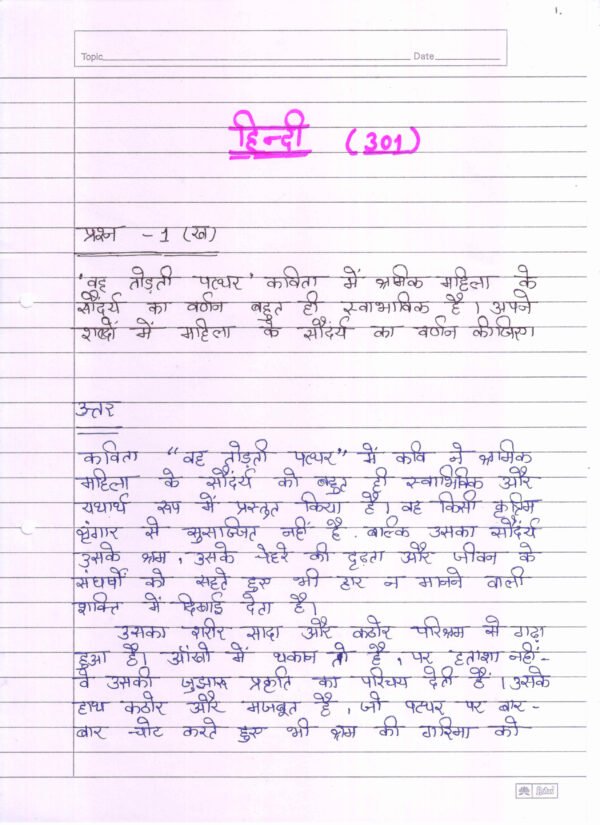 1.
Topic Date
हिन्दी (301)
प्रश्न - 1 (ख)
'वह तोड़ती पत्थर' कविता में श्रमिक महिला के
सौंदर्य का वर्णन बहुत ही स्वाभाविक है। अपने
शब्दों में महिला के सौंदर्य का वर्णन कीजिए।
उत्तर
कविता "वह तोड़ती पत्थर" में कवि ने श्रमिक
महिला के सौंदर्य को बहुत ही स्वाभिविक और
यथार्थ रूप में प्रस्तुत किया है। वह किसी कृत्रिम
श्रृंगार से सुसज्जित नहीं है. बल्कि उसका सौंदर्य
उसके श्रम, उसके चेहरे की दृढ़ता और जीवन के
संघर्षों को सहते हुए भी हार न मानने वाली
शक्ति में दिखाई देता है।
उसका शरीर सादा और कठोर परिश्रम से गढ़ा
हुआ है। आंखों में थकान तो है, पर हताशा नहीं-
वे उसकी जुझारू प्रकृति का परिचय देती हैं। उसके
हाथ कठोर और मजबूत है, जो पत्थर पर बार-
बार चोट करते हुए भी श्रम की गरिमा को